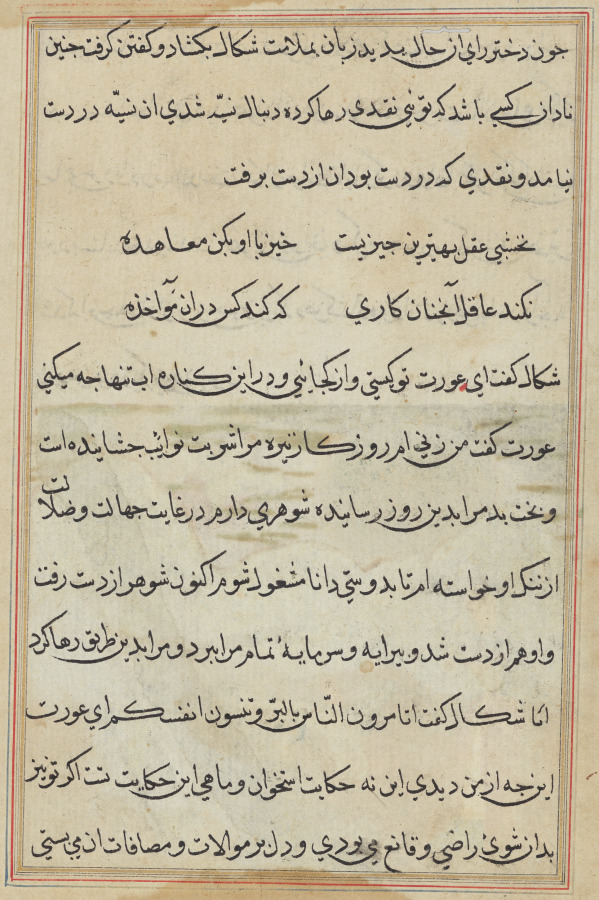 چون دختر رای از حال بدید زبان بملامت شکال بکشاد و کفتن کرفت چنین
نادان کسی باشد که توئی نقدی رها کرده دنبال نسیه شدی ان نسیه در دست
نیامد و نقدی که در دست بود ان از دست برفت
نخشبی عقل بهترین چیزیست خیز با او بکن معاهده
نکند عاقل آنچنان کاری که کند کس در ان مؤاخذه
شکال کفت ای عورت تو کیستی و از کجائی و در این کناره اب تنها چه میکنی
عورت کفت من زنی ام روزکار تیره مرا شربت نوائب چشاینده است
و بخت بد مرا بدین روز رساینده شوهری دارم در غایت جهالت و ضلالت
از ننک او خواسته ام تا بدوستی دانا مشغول شوم اکنون شوهر از دست رفت
و او هم از دست شد و پیرایه و سرمایهٔ تمام مرا ببرد و مرا بدین طریق رها کرد
اما شکال کفت اتامرون النّاس بالبرّ وتنسون انفسکم ای عورت
این چه از من دیدی این نه حکایت استخوان و ماهی این حکایت تست اکر تو نیز
بدان شوی راضی و قانع می بودی و دل بر موالات و مصافات ان می بستی